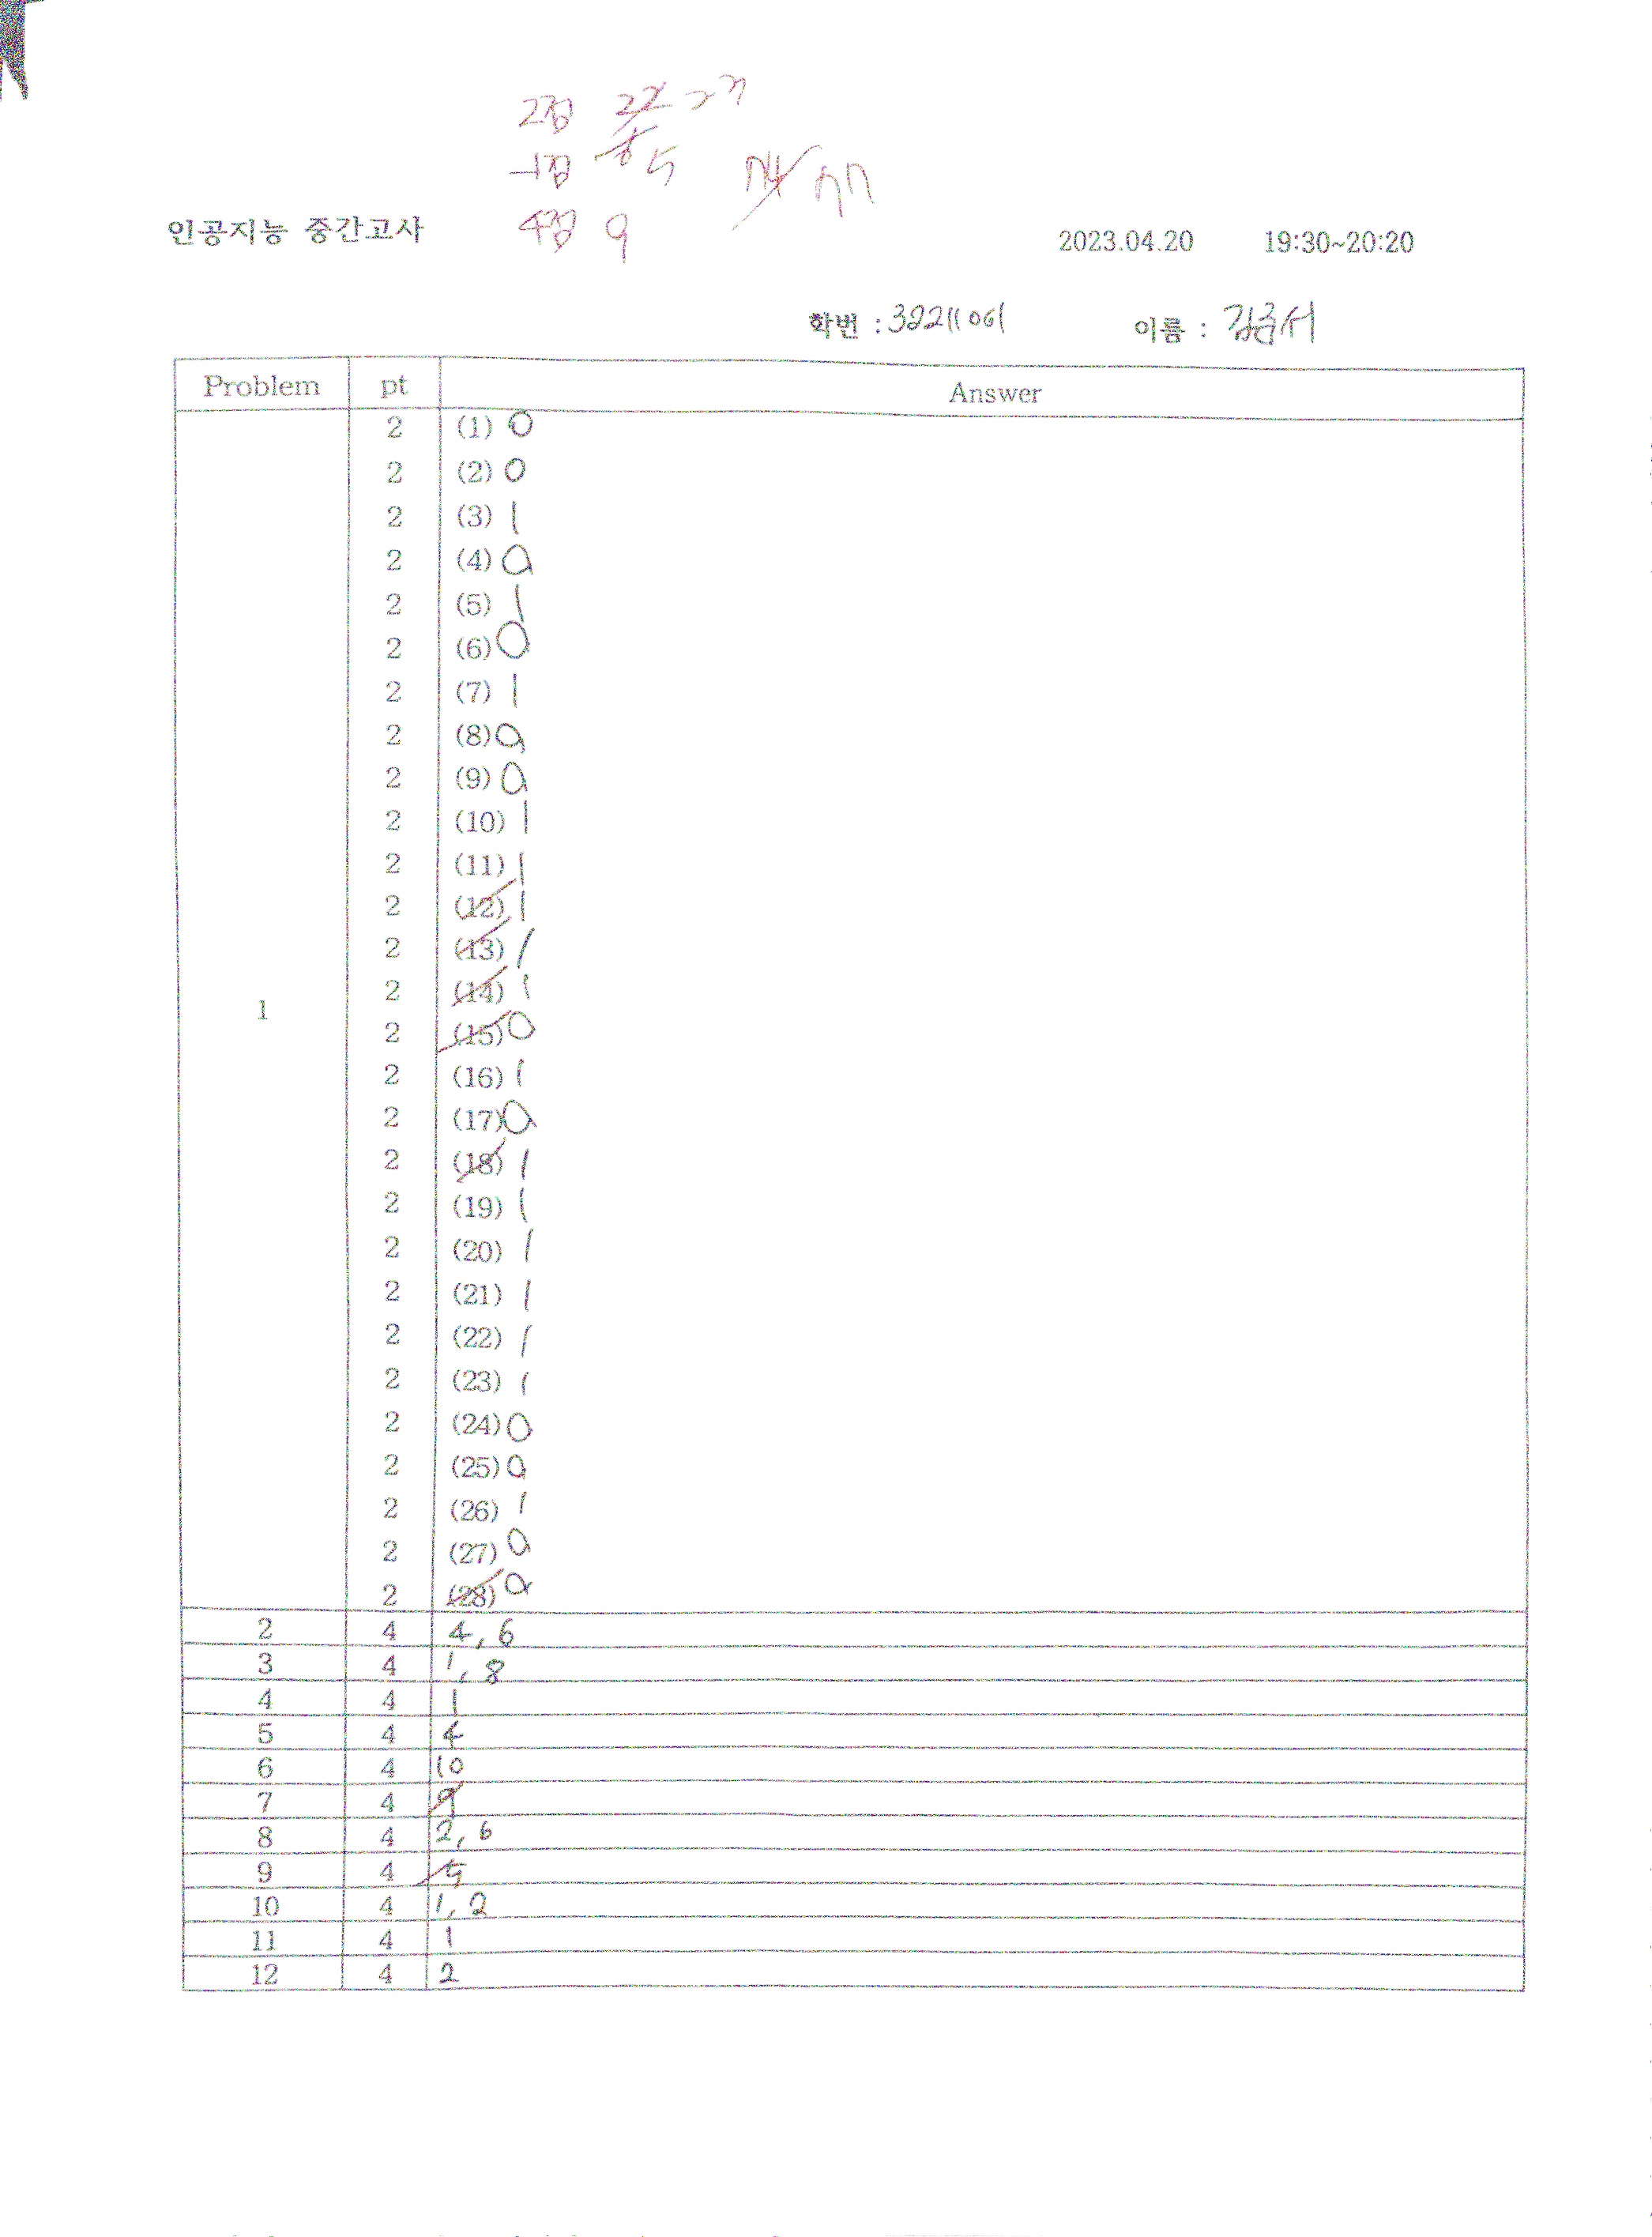 2점 22 23
-1점 6 5 74 77
인공지능 중간고사 4점 9 2023.04.20 19:30~20:20
학번 : 32211061 이름 :
Problem pt Answer
1
2 (1) 0
2 (2) 0
2 (3) 1
2 (4) 0
2 (5) 1
2 (6) 0
2 (7) 1
2 (8) 0
2 (9) 0
2 (10) 1
2 (11) 1
2 (12) 1
2 (13) 1
2 (14) 1
2 (15) 0
2 (16) 1
2 (17) 0
2 (18) 1
2 (19) 1
2 (20) 1
2 (21) 1
2 (22) 1
2 (23) 1
2 (24) 0
2 (25) 0
2 (26) 1
2 (27) 0
2 (28) 0
2 4 4, 6
3 4 1, 8
4 4 1
5 4 4
6 4 10
7 4 9
8 4 2, 6
9 4 5
10 4 1, 2
11 4 1
12 4 2